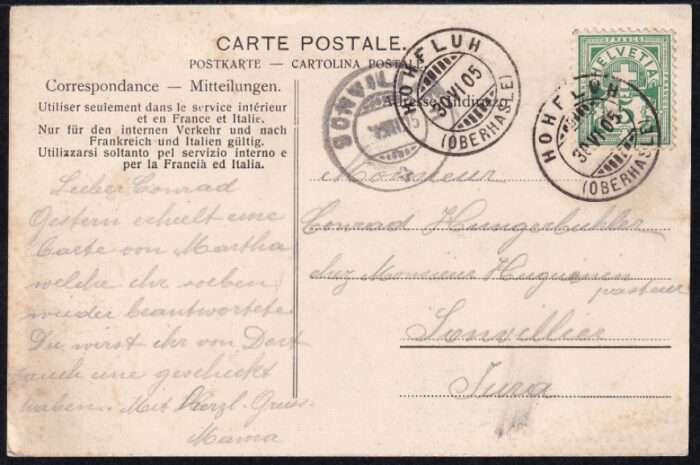 CARTE POSTALE.
POSTKARTE — CARTOLINA POSTALE
Correspondance — Mitteilungen.
Utiliser seulement dans le service intérieur
et en France et Italie.
Nur für den internen Verkehr und nach
Frankreich und Italien gültig.
Utilizzarsi soltanto pel servizio interno e
per la Francia ed Italia.
Lieber Conrad
Gestern erhielt eine
Carte von Martha
welche ihr soeben
wieder beantwortete.
Du wirst ihr von Dort
auch eine geschickt
haben. Mit Herzl. Gruss
Mama
HOHFLUH
30 VI 05
(OBERHASLE)
FRANCO
HELVETIA
5
HOHFLUH
30 VI 05
(OBERHASLE)
Monsieur
Conrad Hungerbuhler
chez Monsieur Huguenin
pasteur
Sonvillier
Jura